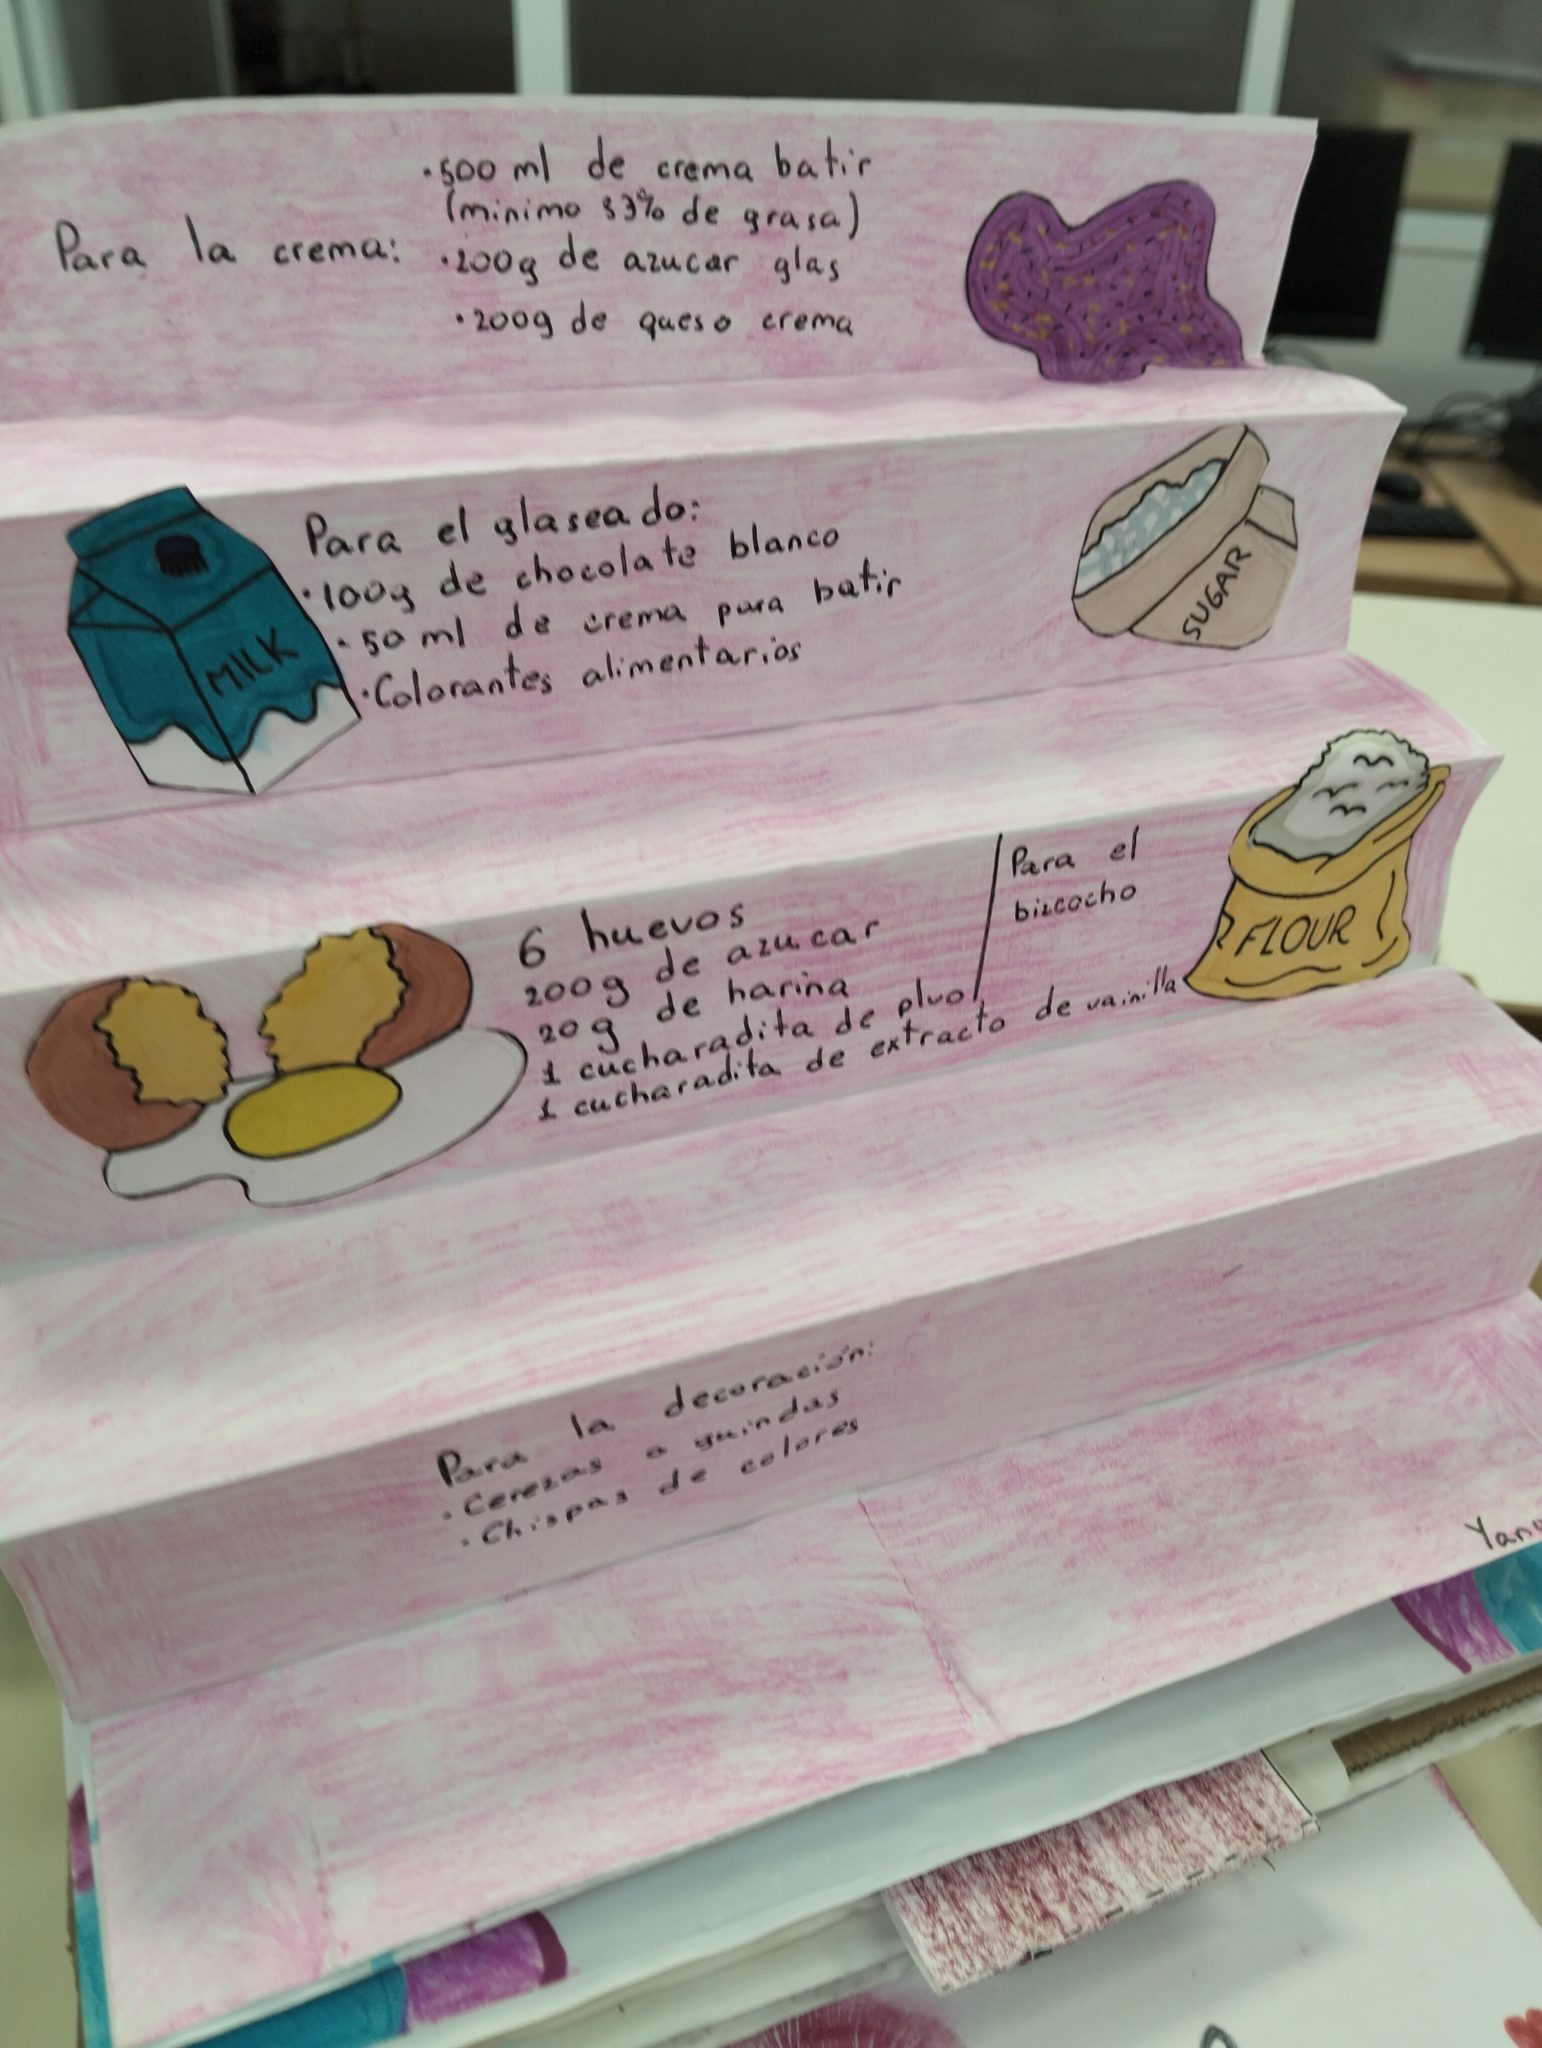 Para la crema:
·500 ml de crema batir
(minimo 33% de grasa)
·200g de azucar glas
·200g de queso crema
MILK
Para el glaseado:
·100g de chocolate blanco
·50 ml de crema para batir
·Colorantes alimentarios
SUGAR
6 huevos
200g de azucar
20g de harina
1 cucharadita de plvo
1 cucharadita de extracto de vainilla
Para el
bizcocho
FLOUR
Para la decoración:
·Cerezas o guindas
·Chispas de colores